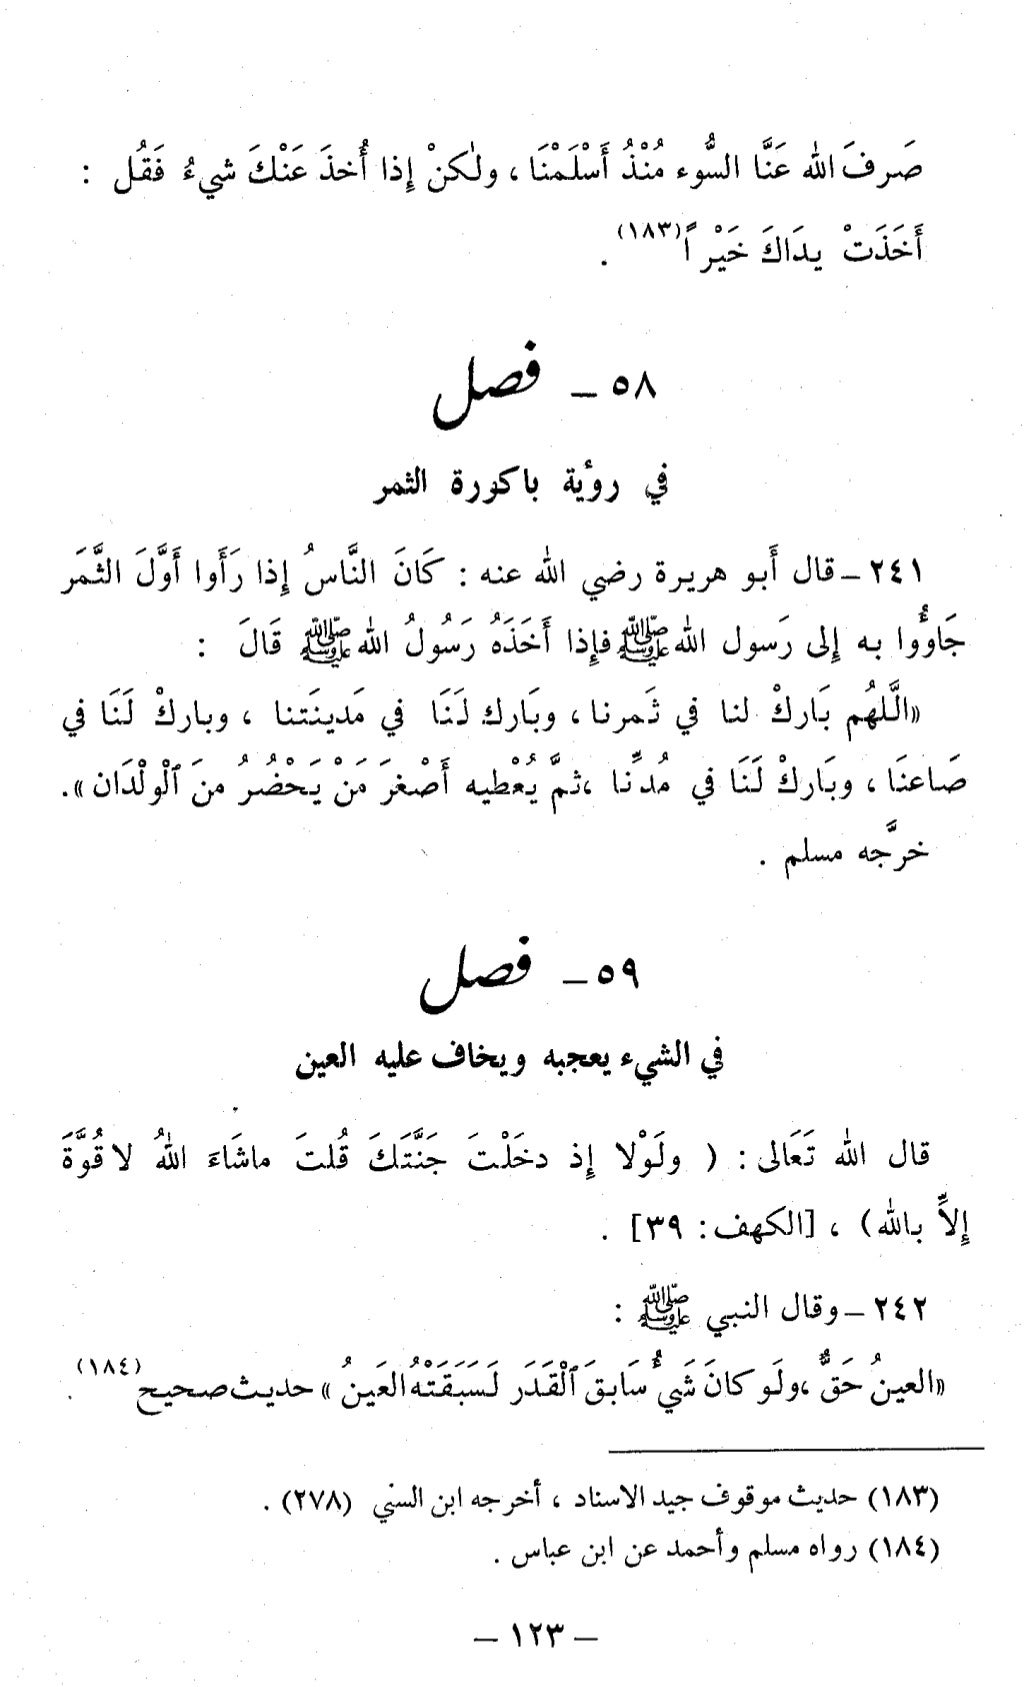 صَرفَ الله عَنَّا السُّوء مُنْذُ أَسْلَمْنَا ، ولٰكنْ إِذا أُخذَ عَنْكَ شيءُ فَقُل :
أَخَذَتْ يدَاكَ خَيْراً(١٨٣) .
٥٨ ـ فصل
في رؤية باكورة الثمر
٢٤١ ـ قال أَبو هريرة رضي الله عنه : كَانَ النَّاسُ إِذا رَأَوا أَوَّلَ الثَّمَر
جَاوُوا به إِلى رَسول الله ﷺ فإِذا أَخَذَهُ رَسُولُ الله ﷺ قَالَ :
«الَّلهُم بَاركْ لنا في ثَمرنا ، وبَارك لَنَا في مَدينَتنا ، وباركْ لَنَا في
صَاعنَا ، وبَاركْ لَنَا في مُدِّنا ،ثمَّ يُعْطيه أَصْغرَ مَنْ يَحْضُرُ منَ ٱلْولْدَان» .
خرَّجه مسلم .
٥٩ ـ فصل
في الشيء يعجبه ويخاف عليه العين
قال الله تَعَالى : ( ولَوْلا إِذ دخَلْتَ جَنَّتَكَ قُلتَ ماشَاءَ اللهُ لا قُوَّةَ
إِلاَّ بالله) ، [الكهف: ٣٩] .
٢٤٢ ـ وقال النبي ﷺ :
«العينُ حَقٌّ ،ولَو كانَ شَيءُ سَابقَ ٱلْقَدَر لَسَبَقَتْهُ العَينُ » حديث صحيح(١٨٤) .
(١٨٣) حديث موقوف جيد الاسناد ، أخرجه ابن السني (٢٧٨) .
(١٨٤) رواه مسلم وأحمد عن ابن عباس .
ـ ١٢٣ ـ